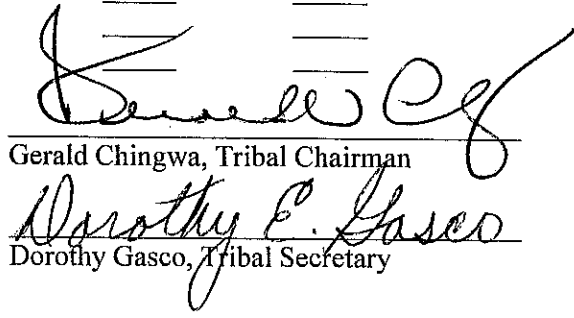 Gerald Chingwa, Tribal Chairman
Dorothy E. Gasco
Dorothy Gasco, Tribal Secretary